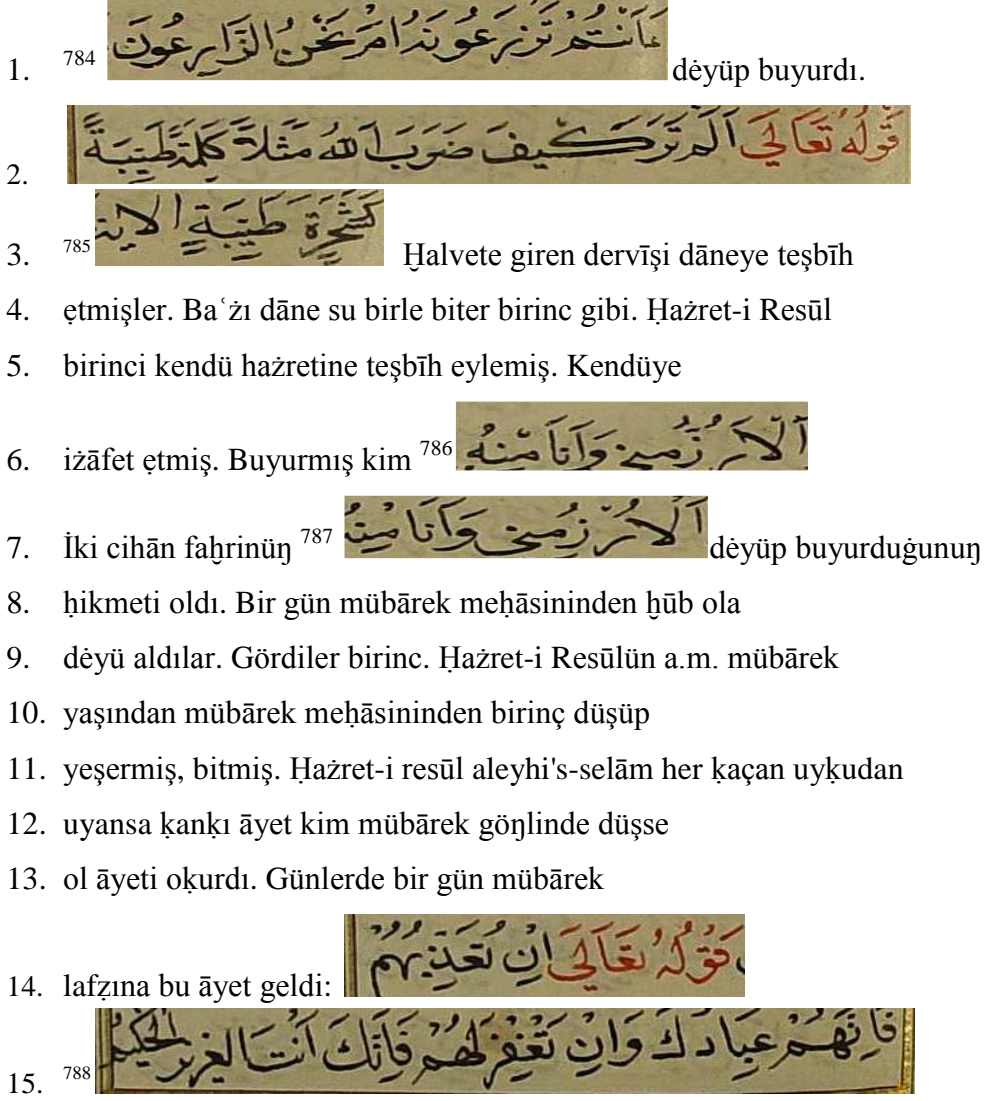 1. 784 ءَاَنْتُمْ تَزْرَعُونَهُ اَمْ نَحْنُ الزَّارِعُونَ dėyüp buyurdı.
2. قَوْلُهُ تَعَالَى اَلَمْ تَرَ كَيْفَ ضَرَبَ اللهُ مَثَلاً كَلِمَةً طَيِّبَةً
3. 785 كَشَجَرَةٍ طَيِّبَةٍ الاية Ḫalvete giren dervīşi dāneye teşbīh
4. ẹtmişler. Baʿżı dāne su birle biter birinc gibi. Ḥażret-i Resūl
5. birinci kendü hażretine teşbīh eylemiş. Kendüye
6. iżāfet ẹtmiş. Buyurmış kim 786 اَلْاَرُزُّ مِنِّي وَاَنَا مِنْهُ
7. İki cihān faḫrinüŋ 787 اَلْاَرُزُّ مِنِّي وَاَنَا مِنْهُ dėyüp buyurduġunuŋ
8. ḥikmeti oldı. Bir gün mübārek meḥāsininden ḫūb ola
9. dėyü aldılar. Gördiler birinc. Ḥażret-i Resūlün a.m. mübārek
10. yaşından mübārek meḥāsininden birinç düşüp
11. yeşermiş, bitmiş. Ḥażret-i resūl aleyhi's-selām her ḳaçan uyḳudan
12. uyansa ḳanḳı āyet kim mübārek göŋlinde düşse
13. ol āyeti oḳurdı. Günlerde bir gün mübārek
14. lafẓına bu āyet geldi: قَوْلُهُ تَعَالَى اِنْ تُعَذِّبْهُمْ
15. 788 فَاِنَّهُمْ عِبَادُكَ وَاِنْ تَغْفِرْ لَهُمْ فَاِنَّكَ اَنْتَ الْعَزِيزُ الْحَكِيمُ